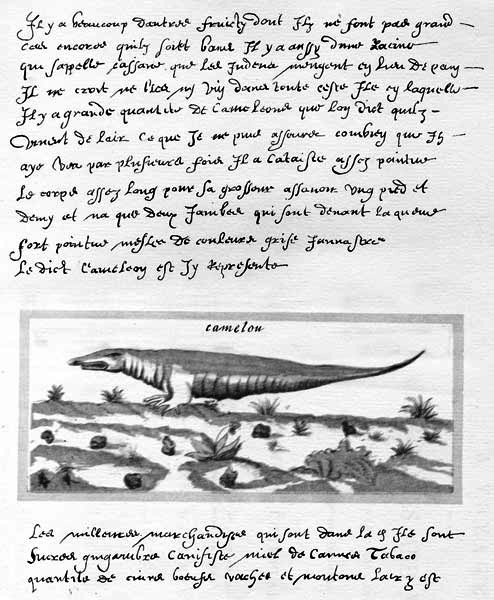 Il y a beaucoup dautres fruictz dont Ilz ne font pas grand
cas encores quilz soict bons Il y a aussy dune Racine
qui sappelle cassave que les Indiens mengent en lieu de pain
Il ne croit ne bled ny vin dans toute ceste Ile en laquelle
Il y a grande quantite de Cameleons que lon dict quilz
vivent de lair ce que Je ne puis asseurer combien que Jen
aye veu par plusieurs fois Il a la teste assez pointue
Le corps assez long pour sa grosseur assavoir ung pied et
demy et na que deux Jambes qui sont devant la queue
fort pointue meslee de couleurs grise Jaunastre
Le dict Cameleon est Icy Represente
camelou
Les meilleures marchandises qui sont dans la d Ile sont
sucres gingembre Canifiste miel de Cannes Tabaco
quantite de cuirs boeufs vaches et moutons Lair y est